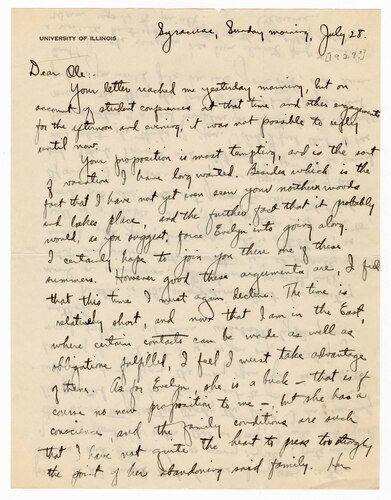 UNIVERSITY OF ILLINOIS
Syracuse, Sunday morning, July 28.
[192?]
Dear Ole:-
Your letter reached me yesterday morning, but on
account of student conferences at that time and other engagements
for the afternoon and evening, it was not possible to reply
until now.
Your proposition is most tempting, and is the sort
of vacation I have long wanted. Besides which is the
fact that I have not yet even seen your northern woods
and lakes place, and the further fact that it probably
would, as you suggest, force Evelyn into going along.
I certainly hope to join you there one of these
summers. However good these arguments are, I feel
that this time I must again decline. The time is
relatively short, and now that I am in the East,
where certain contacts can be made as well as
obligations fulfilled, I feel I must take advantage
of them. As for Evelyn, she is a brick – that is of
course no new proposition to me –, but she has a
conscience and the family conditions are such
that I have not quite the heart to press too strongly
the point of her abandoning said family. Her